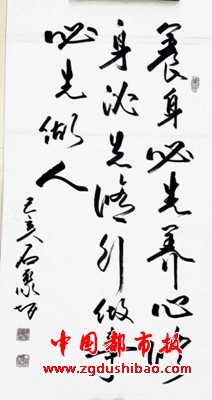 養身必先养心修
身必先修行做事
必先做人
己亥石
中國都市报
www.zgdushibao.com